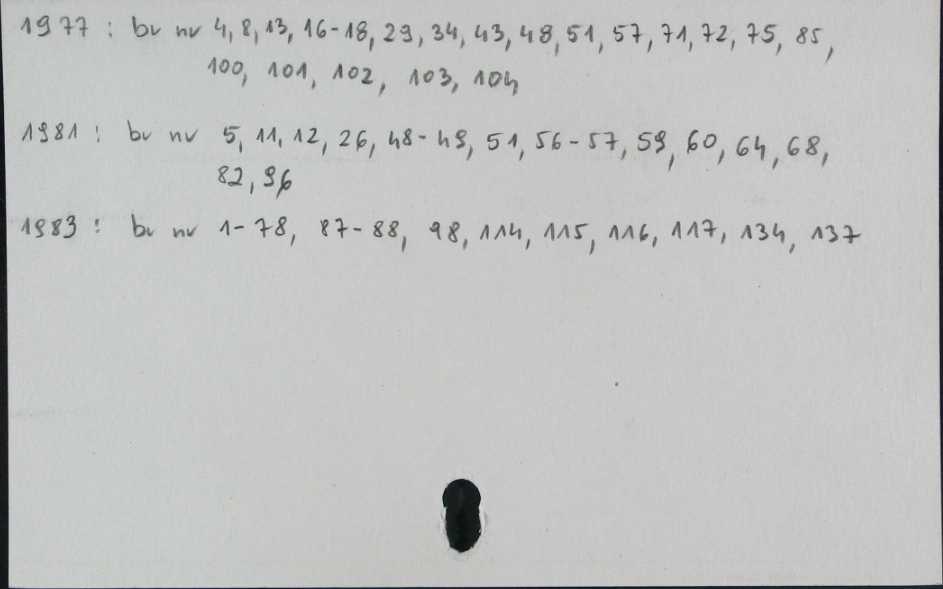 1977 : br nr 4, 8, 13, 16-18, 29, 34, 43, 48, 51, 57, 71, 72, 75, 85,
100, 101, 102, 103, 104
1981 : br nr 5, 11, 12, 26, 48-49, 51, 56-57, 59, 60, 64, 68,
82, 96
1983 : br nr 1-78, 87-88, 98, 114, 115, 116, 117, 134, 137